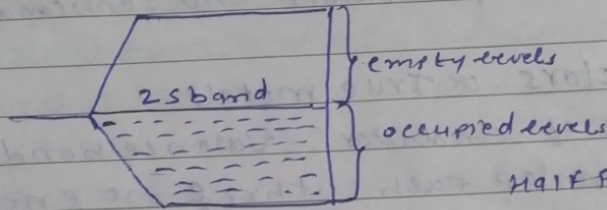 empty levels
2s band
occupied levels
Half F